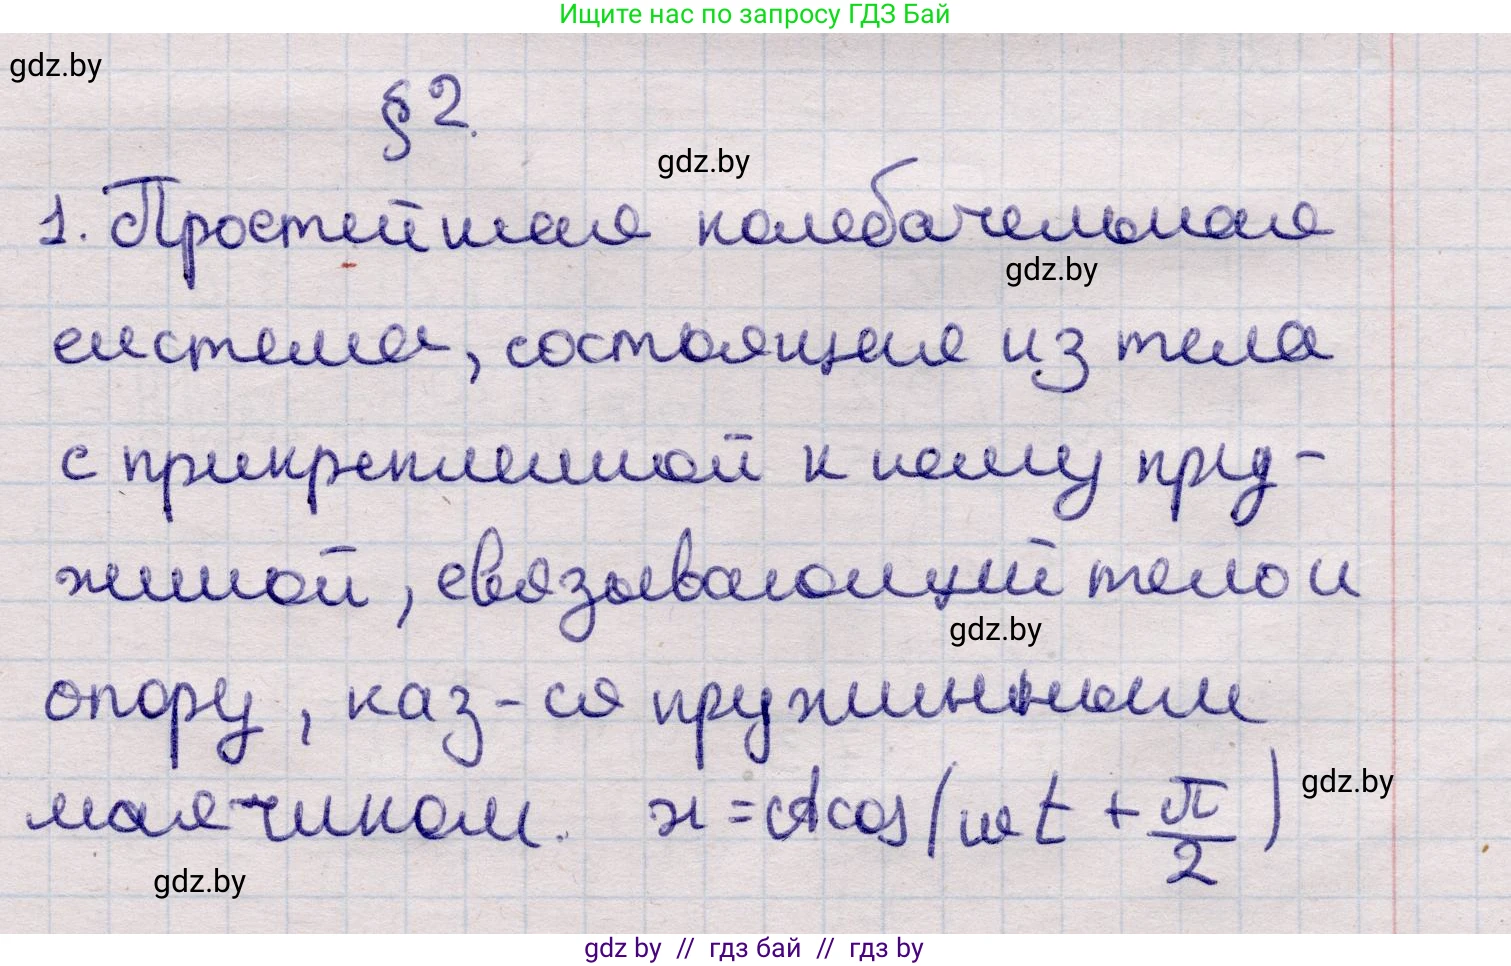 Ищите нас по запросу ГДЗ Бай
gdz.by
§ 2.
gdz.by
1. Простейшая колебательная
gdz.by
система, состоящая из тела
с прикрепленной к нему пру-
жиной, связывающий тело и
gdz.by
опору, наз-ся пружинным
маятником. x = A cos(ωt + π/2)
gdz.by
gdz.by
gdz by // гдз бай // гдз by